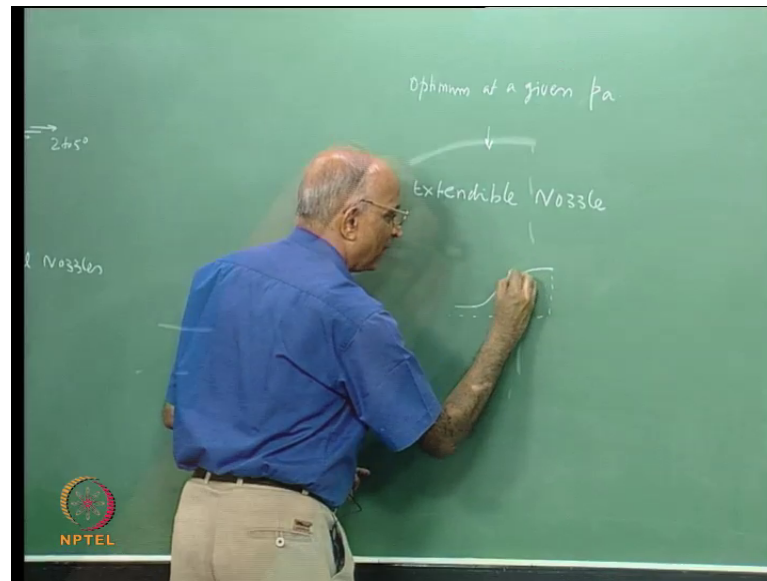 Optimum at a given pa
2 to 5°
Extendible Nozzle
l Nozzles
NPTEL